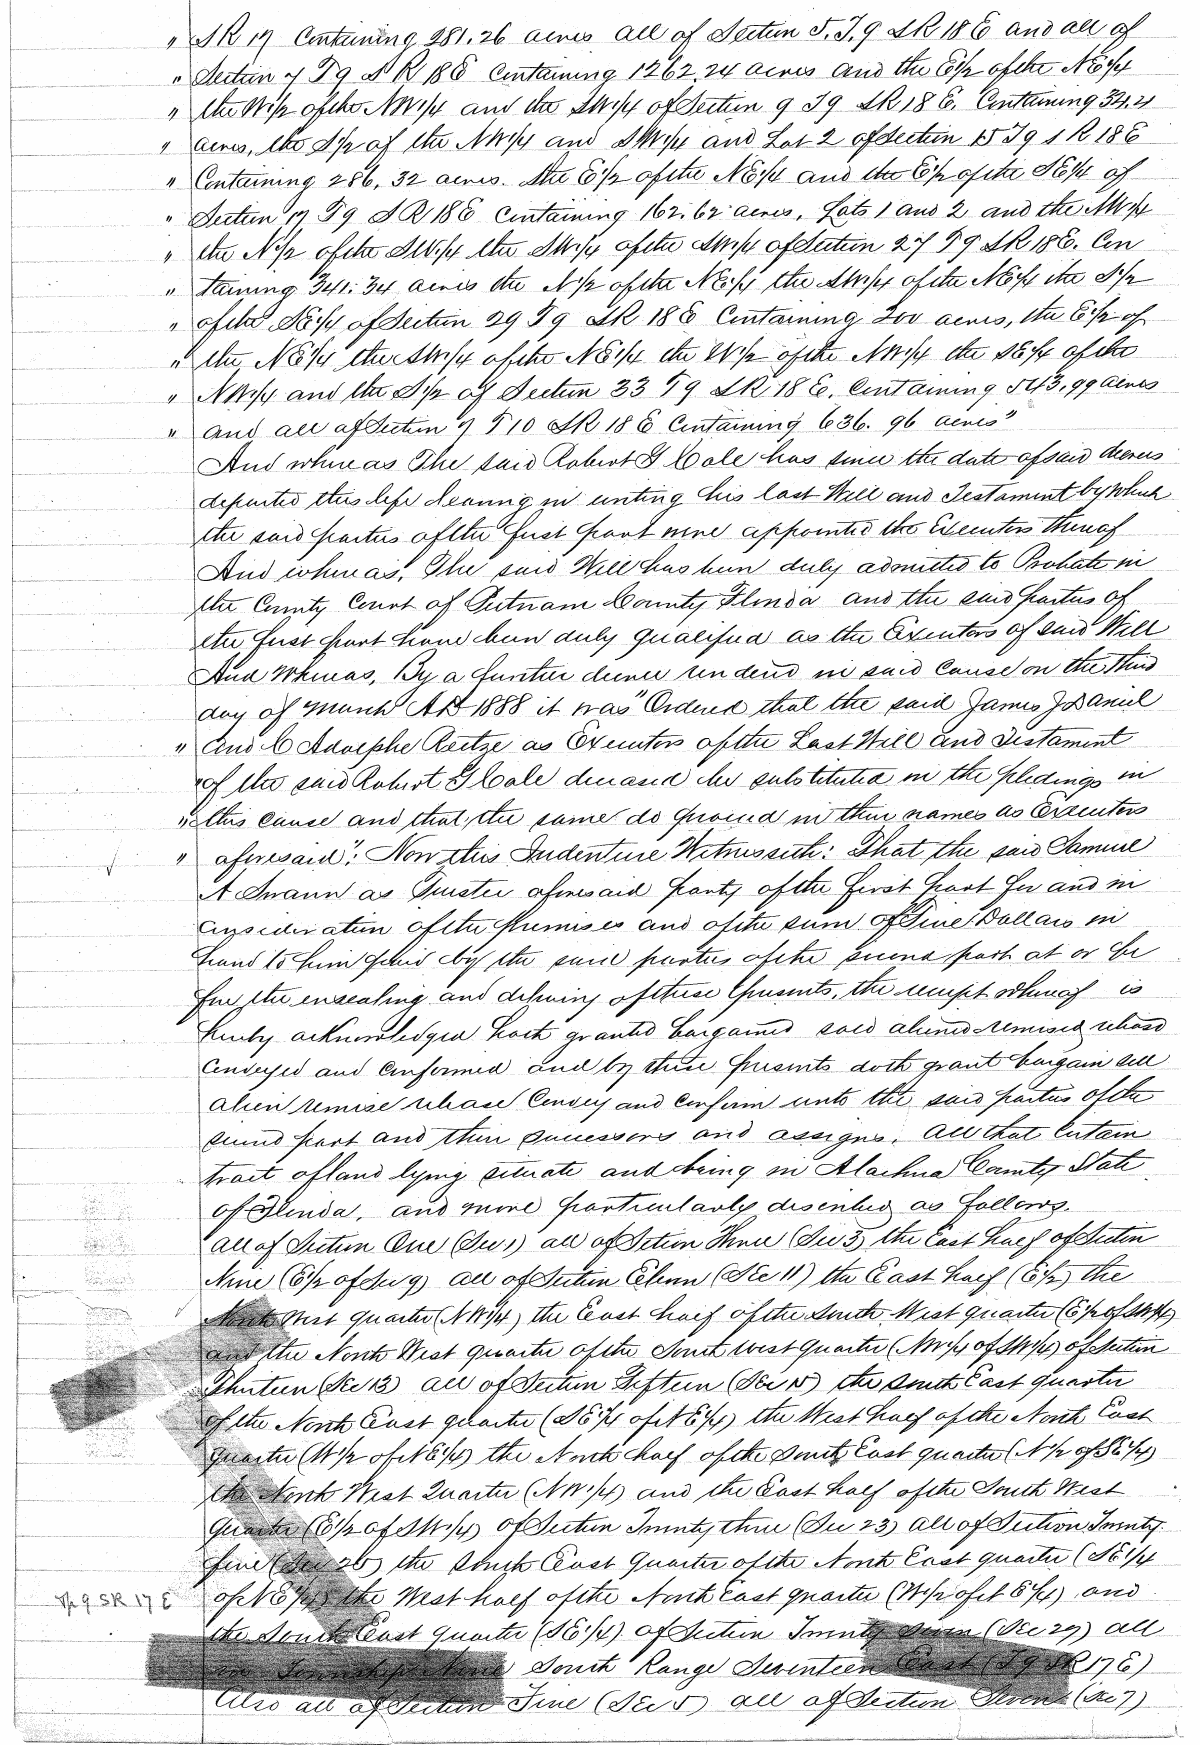 " S R 17 Containing 281.26 acres all of Section 5. T. 9 S R 18 E and all of
" Section 7 T 9 S R 18 E Containing 1262.24 acres and the E½ of the NE¼
" the W½ of the NW¼ and the SW¼ of Section 9 T 9 S R 18 E. Containing
" acres, the S½ of the NW¼ and SW¼ and Lot 2 of Section 15 T 9 S R 18 E
" Containing 286.32 acres. the E½ of the NE¼ and the E½ of the SE¼ of
" Section 17 T 9 S R 18 E Containing 162.62 acres, Lots 1 and 2 and the NW¼
" the N½ of the SW¼ the SW¼ of the SW¼ of Section 27 T 9 S R 18 E. Con
" taining 341.34 acres the N½ of the NE¼ the SW¼ of the NE¼ the S½
" of the SE¼ of Section 29 T 9 S R 18 E Containing 200 acres, the E½ of
" the NE¼ the SW¼ of the NE¼ the W½ of the NW¼ the SE¼ of the
" NW¼ and the S½ of Section 33 T 9 S R 18 E. Containing 543.99 acres
" and all of Section 7 T 10 S R 18 E Containing 636.96 acres"
And whereas The said Robert G Cole has since the date of said decree
departed this life leaving in writing his last Will and Testament by which
the said parties of the first part were appointed the Executors thereof
And whereas, The said Will has been duly admitted to Probate in
the County Court of Putnam County Florida and the said parties of
the first part have been duly qualified as the Executors of said Will
And Whereas, By a further decree rendered in said cause on the third
day of March A D 1888 it was "Ordered that the said James J Daniel
" and C Adolphe Reitze as Executors of the Last Will and Testament
" of the said Robert G Cole deceased be substituted in the pledings in
" this cause and that the same do proceed in their names as Executors
" aforesaid": Now this Indenture Witnesseth: That the said Samuel
A Swann as Trustee aforesaid party of the first part for and in
consideration of the premises and of the sum of Five Dollars in
hand to him paid by the said parties of the second part at or be
fore the ensealing and delivery of these presents, the receipt whereof is
hereby acknowledged hath granted bargained sold aliened remised release
conveyed and confirmed and by these presents doth grant bargain sell
alien remise release Convey and confirm unto the said parties of the
second part and their successors and assigns. All that Certain
tract of land lying situate and being in Alachua County State
of Florida, and more particularly described as follows.
all of Section One (Sec 1) all of Section Three (Sec 3) the East half of Section
Nine (E½ of Sec 9) all of Section Eleven (Sec 11) the East half (E½) the
North West quarter (NW¼) the East half of the South West quarter (E½ of SW¼)
and the North West quarter of the South west quarter (NW¼ of SW¼) of Section
Thirteen (Sec 13) all of Section Fifteen (Sec 15) the South East quarter
of the North East quarter (SE¼ of NE¼) the West half of the North East
quarter (W½ of NE¼) the North half of the South East quarter (N½ of SE¼)
the North West Quarter (NW¼) and the East half of the South West
Quarter (E½ of SW¼) of Section Twenty three (Sec 23) all of Section Twenty
five (Sec 25) the South East Quarter of the North East quarter (SE¼
of NE¼) the West half of the North East quarter (W½ of NE¼) and
the South East quarter (SE¼) of Section Twenty seven (Sec 27) all
Tp 9 SR 17 E
in Township Nine South Range Seventeen East (T 9 S R 17 E)
Also all of Section Five (Sec 5) all of Section Seven (Sec 7)